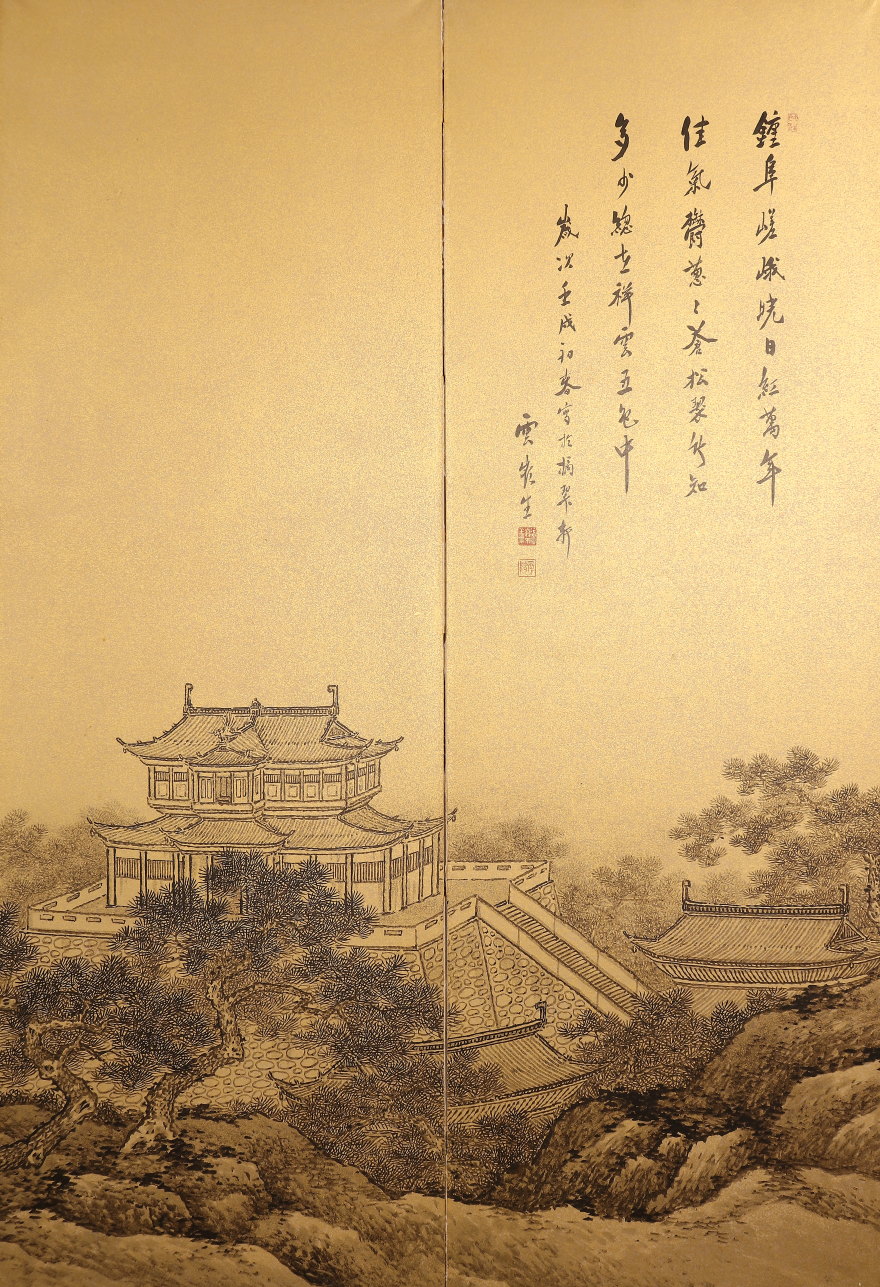 鍾阜嵯峨曉日紅萬年
佳氣鬱蔥〻蒼松翠竹知
多少總在祥雲五色中
歲次壬戌初春寫於摘翠軒
雲生